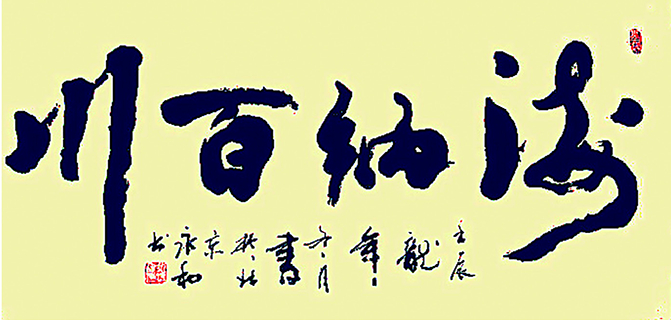 海纳百川
壬辰
龍
年
冬月
書
於北
京
永和
书